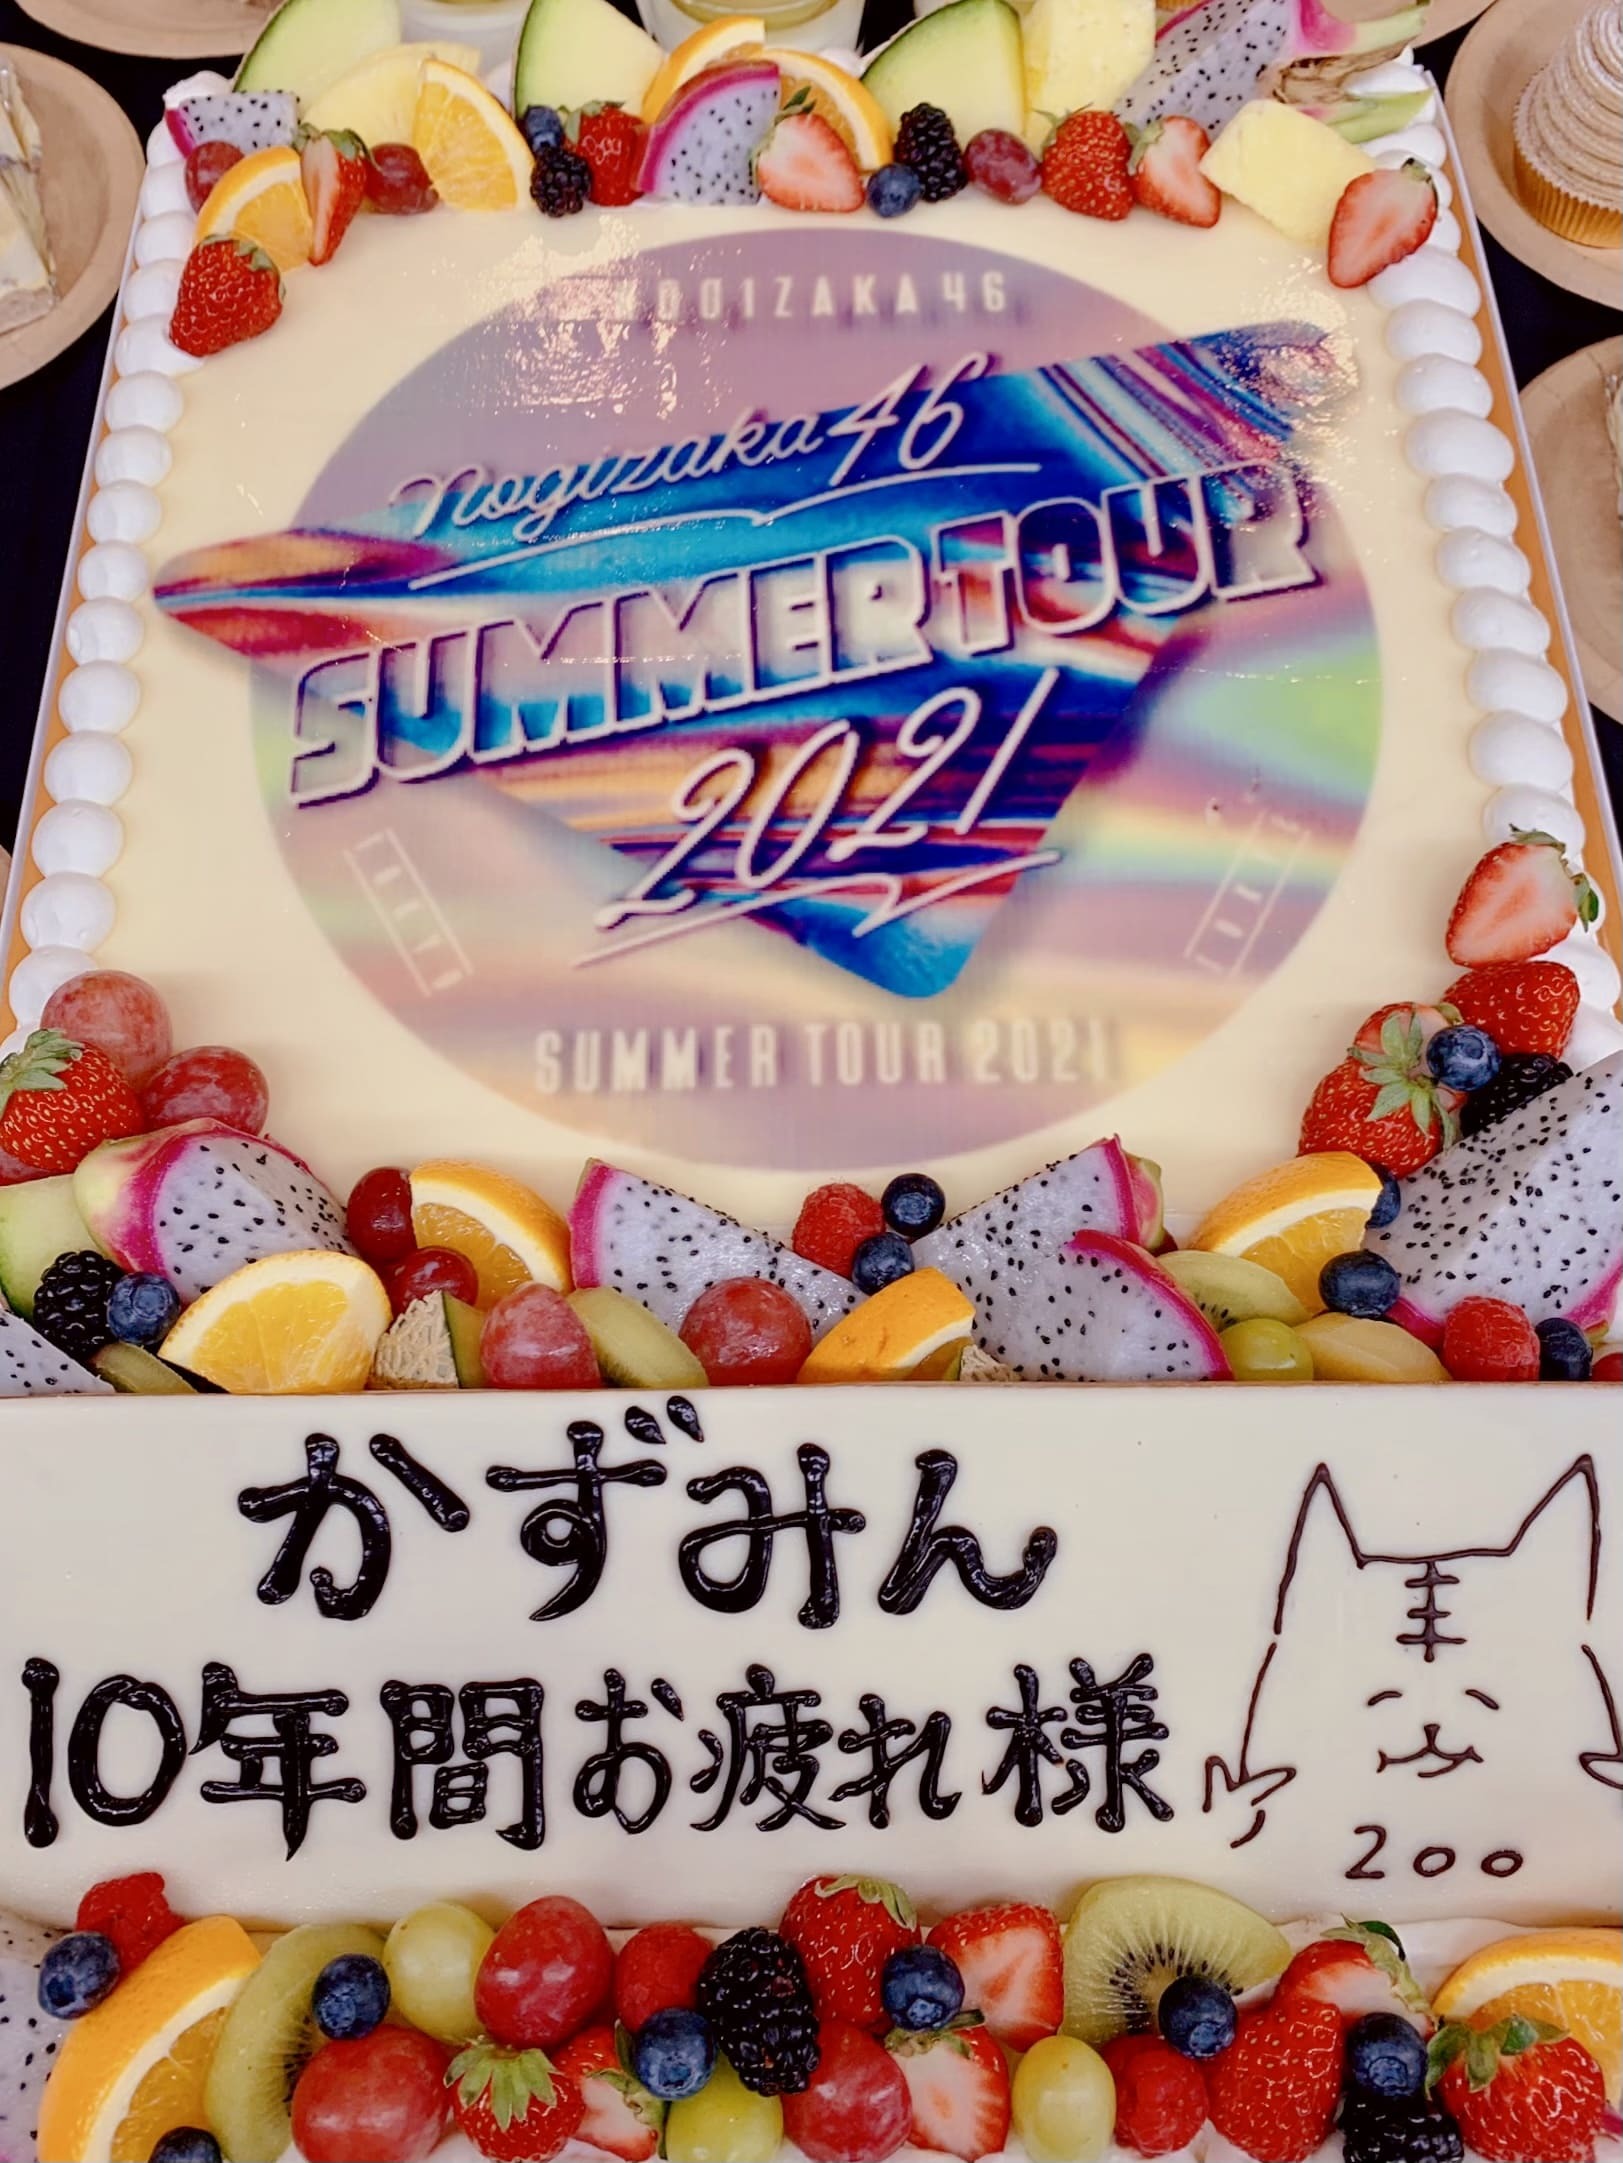 NOGIZAKA46
nogizaka46
SUMMER TOUR
2021
SUMMER TOUR 2021
かずみん
10年間お疲れ様
200